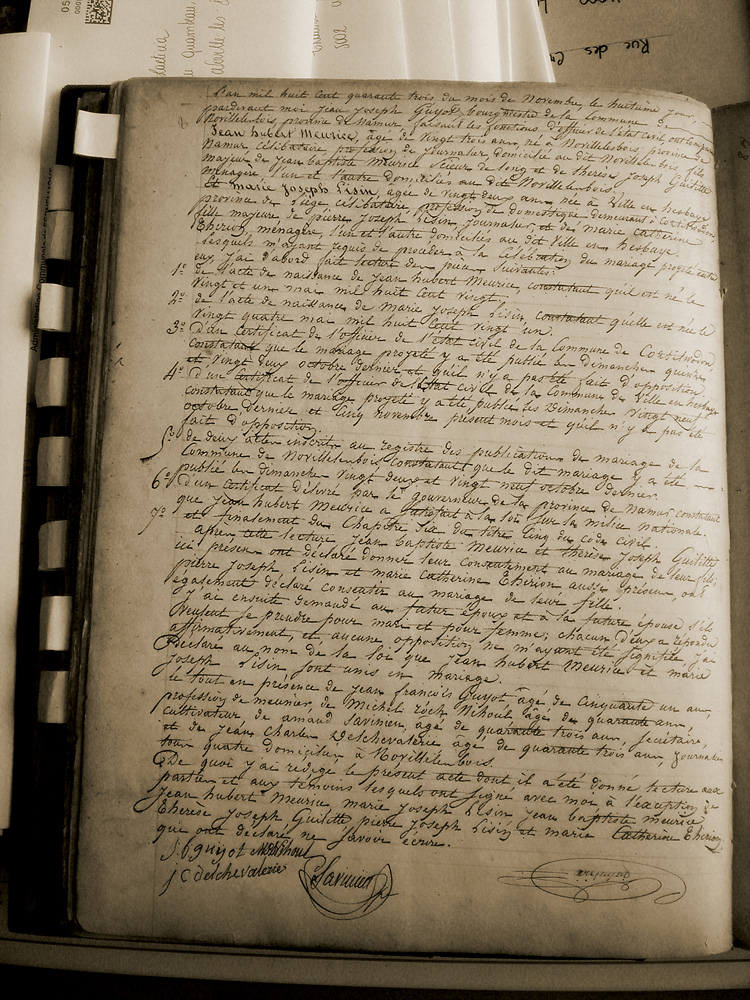 Rue des
L'an mil huit cent quarante trois du mois de Novembre, le huitieme jour,
pardevant moi Jean Joseph Guyot bourgmestre de la commune de
Noville les bois, province de Namur, faisant les fonctions d'officier de l'état civil, ont comparu
Jean hubert Meurice, agé de vingt trois ans, né à Novillelesbois, province de
Namur, célibataire, profession de journalier domicilié au dit Noville les bois, fils
majeur de jean baptiste Meurice scieur de long et de thérèse Joseph Guilitte
ménagère, l'un et l'autre domiciliés au dit Novillelesbois.
Et marie Joseph Lisin, agée de vingt deux ans, née à Ville en hesbaye
province de Liège, célibataire profession de domestique demeurant à Cortilwodon
fille majeure de pierre Joseph Lisin, journalier, et de marie Catherine
Etherion, ménagère, l'un et l'autre domiciliés au dit Ville en hesbaye.
lesquels m'ayant requis de procéder à la célébration du mariage projeté entre
eux, j'ai d'abord fait lecture des pieces suivantes:
1º de l'acte de naissance de Jean hubert Meurice, constatant qu'il est né le
vingt et un mai mil huit cent vingt,
2º de l'acte de naissance de Marie Joseph Lisin, constatant qu'elle est née le
vingt quatre mai mil huit cent vingt un.
3º d'un certificat de l'officier de l'état civil de la Commune de Cortilwodon
constatant que le mariage projeté y a été publié les dimanche quinze
et vingt deux octobre dernier et qu'il n'y a pas été fait d'opposition
4º d'un certificat de l'officier de l'état civil de la Commune de Ville en hesbaye
constatant que le mariage projeté y a été publié les dimanche vingt neuf
octobre dernier et cinq novembre présent mois et qu'il n'y a pas été
fait d'opposition.
5º de deux actes inscrit au registre des publications de mariage de la
commune de Novillelesbois constatant que le dit mariage y a été
publié les dimanche vingt deux et vingt neuf octobre dernier.
6º d'un certificat délivré par le gouverneur de la province de Namur constatant
que Jean hubert Meurice a satisfait à la loi sur la milice nationale.
7º et finalement du Chapitre six du titre cinq du code civil.
après cette lecture jean baptiste Meurice et thérèse Joseph Guilitte
ici présens ont déclaré donner leur consentement au mariage de leur fils,
pierre Joseph Lisin et marie Catherine Etherion aussi présens, ont
également déclaré consentir au mariage de leur fille.
j'ai ensuite demandé au futur époux et à la future épouse s'ils
veulent se prendre pour mari et pour femme; chacun d'eux a répondu
affirmativement, et aucune opposition ne m'ayant été signifiée, j'ai
déclaré au nom de la loi que jean hubert Meurice et marie
Joseph Lisin sont unis en mariage.
le tout en présence de jean françois Guyot agé de cinquante un ans,
profession de meunier, de Michel roch Nihoul agé de quarante ans,
cultivateur de amand Savinien, agé de quarante trois ans, secrétaire,
et de jean Charles Delchevalerie agé de quarante trois ans, journalier
tous quatre domiciliés à Novillelesbois.
De quoi j'ai rédigé le présent acte dont il a été donné lecture aux
parties et aux témoins lesquels ont signé avec moi à l'exception de
jean hubert Meurice, marie Joseph Lisin jean baptiste meurice
thérèse Joseph Guilitte pierre Joseph Lisin et marie Catherine Etherion
qui ont déclaré ne savoir écrire.
J. f guyot MRNihoul
j C delchevalerie